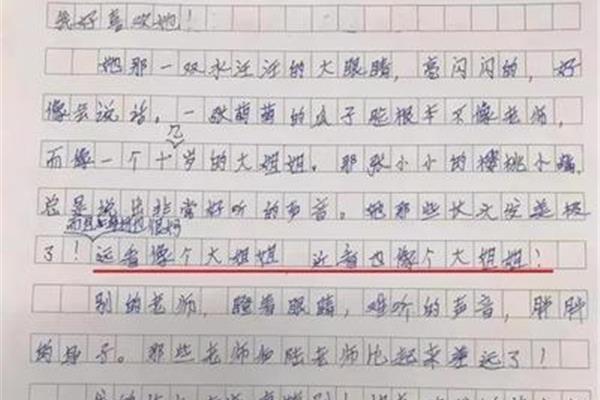 我好喜欢她！
她那一双水汪汪的大眼睛，亮闪闪的，好
像会说话。一张萌萌的瓜子脸根本不像老师，
几
而像一个十岁的大姐姐。那张小小的樱桃小嘴，
总是说出非常好听的声音。她那些长头发美极
而且 很好
了！远看像个大姐姐 近看也像个大姐姐！
别的老师，瞪着眼睛，难听的声音，胖胖
的身子。那些老师和陆老师比起来差远了！